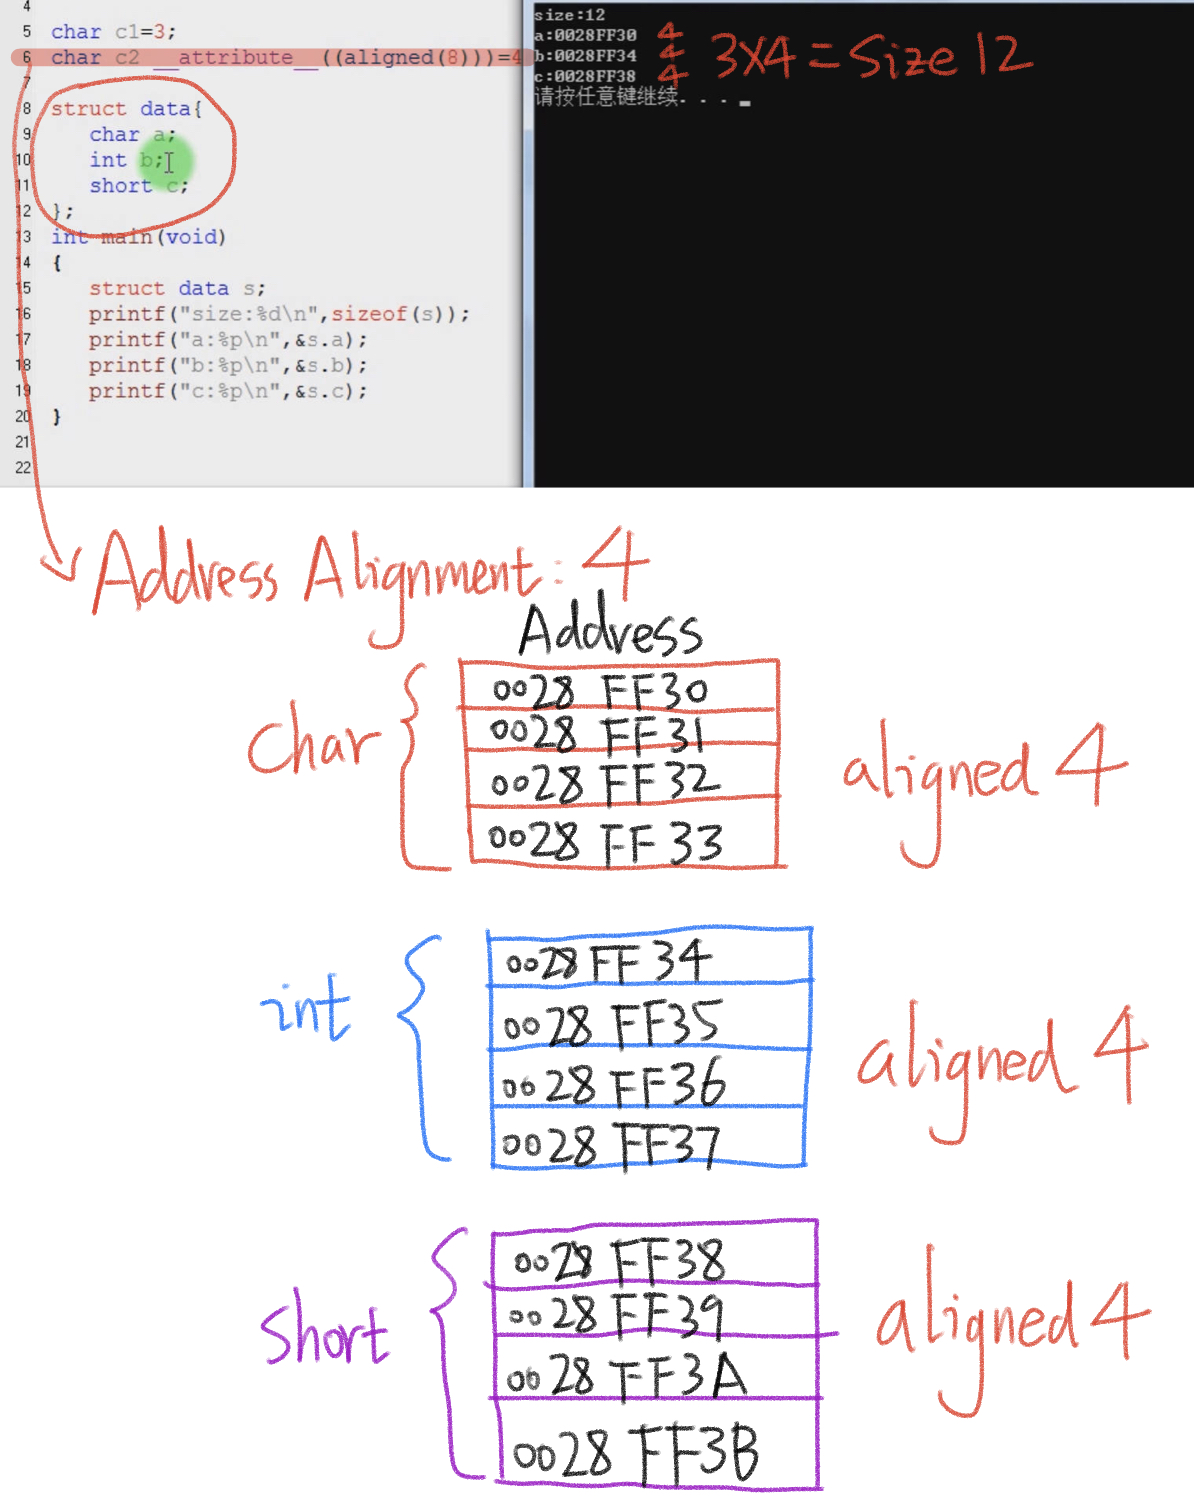 4
5 char c1=3;
6 char c2 __attribute__((aligned(8)))=4
7
8 struct data{
9 char a;
10 int b;
11 short c;
12 };
13 int main(void)
14 {
15 struct data s;
16 printf("size:%d\n",sizeof(s));
17 printf("a:%p\n",&s.a);
18 printf("b:%p\n",&s.b);
19 printf("c:%p\n",&s.c);
20 }
21
22
size:12
a:0028FF30 4
b:0028FF34 4
c:0028FF38 4
3X4=Size 12
请按任意键继续. . .
Address Alignment: 4
Address
char
0028 FF30
0028 FF31
0028 FF32
0028 FF33
aligned 4
int
0028 FF34
0028 FF35
0028 FF36
0028 FF37
aligned 4
short
0028 FF38
0028 FF39
0028 FF3A
0028 FF3B
aligned 4